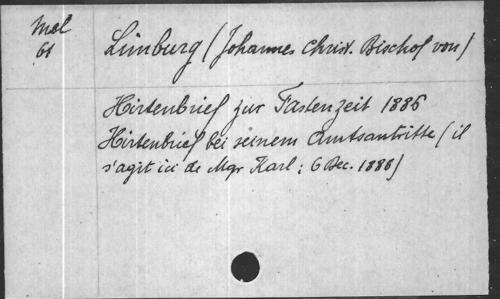 Mel
61
Limburg (Johannes Christ. Bischof von)
Hirtenbrief zur Fastenzeit 1886
Hirtenbrief bei seinem Amtsantritte (il
s'agit ici de Mgr Karl; 6 Dec. 1886)